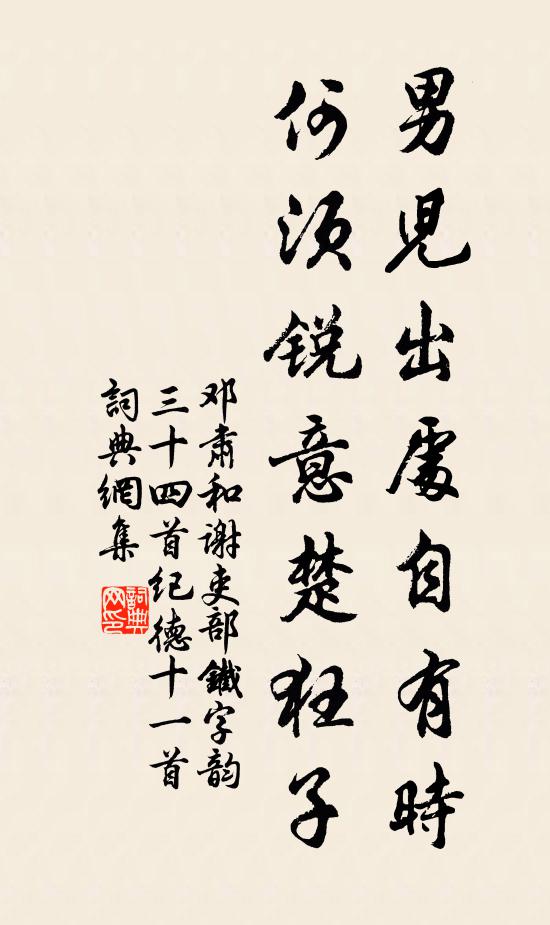 男児出處自有時
何須銳意楚狂子
邓肅和谢吏部鐵字韵
三十四首纪德十一首
詞典網集
詞典
网印